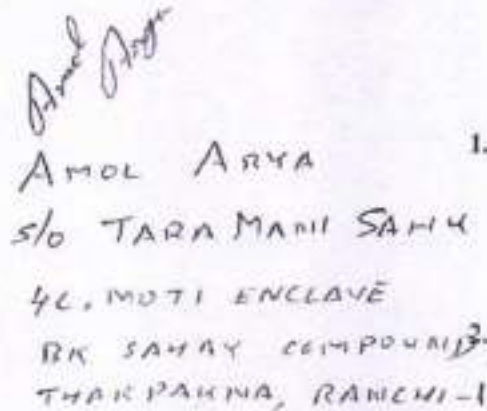 Amol Arya
AMOL ARYA 1.
S/o TARA MANI SAHU
4C, MOTI ENCLAVE
RK SAHAY COMPOUND 3.
THARPAKNA, RANCHI-1